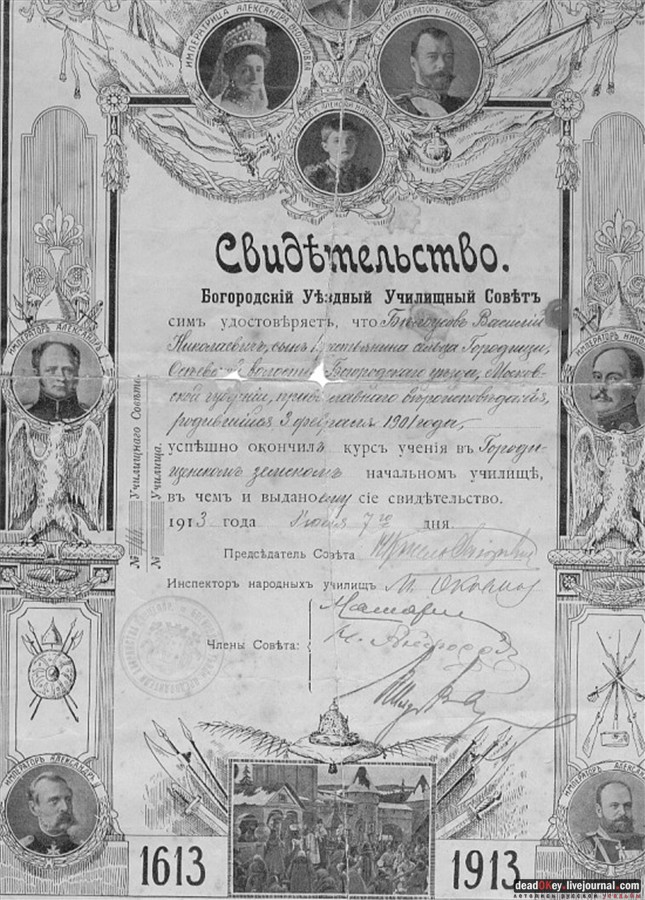 ИМПЕРАТРИЦА АЛЕКСАНДРА ѲЕОДОРОВНА
ИМПЕРАТОРЪ НИКОЛАЙ II
АЛЕКСѢЙ
Свидѣтельство.
Богородскій Уѣздный Училищный Совѣтъ
симъ удостовѣряетъ, что Василій
Николаевичъ, сынъ крестьянина сельца Городищи,
волости Богородскаго уѣзда, Москов-
ской губерніи, православнаго вѣроисповѣданія,
родившійся 3 февраля 1901 года,
успѣшно окончилъ курсъ ученія въ Городи-
щенскомъ земскомъ начальномъ училищѣ,
въ чемъ и выдано ему сіе свидѣтельство.
1913 года Іюня 7го дня.
Предсѣдатель Совѣта
Инспекторъ народныхъ училищъ
Члены Совѣта:
№ Училищнаго Совѣта.
№ Училища.
ИМПЕРАТОРЪ АЛЕКСАНДРЪ I
ИМПЕРАТОРЪ
ИМПЕРАТОРЪ АЛЕКСАНДРЪ II
ИМПЕРАТОРЪ
1613
1913
deadOKey.livejournal.com